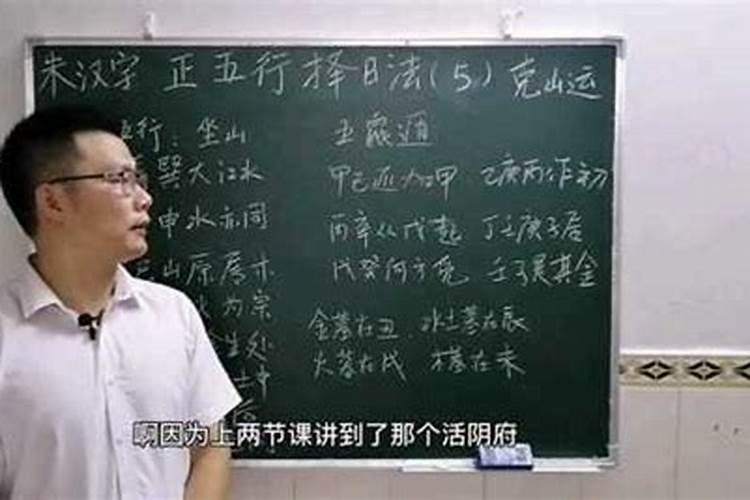 朱汉字 正五行择日法(5)克山运
行:坐山 五鼠遁
巽大江水 甲己还加甲 乙庚丙作初
申水亦同 丙辛从戊起 丁壬庚子居
山原属木 戊癸何方觅 壬子是真金
为宗 金墓在丑 水土墓在辰
生处 火墓在戌 木墓在未
啊因为上两节课讲到了那个活阴府